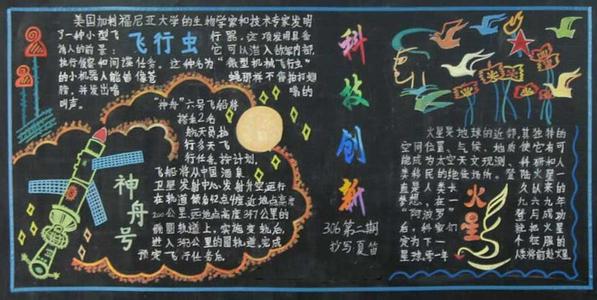 美国加利福尼亚大学的生物学家和技术专家发明
了一种小型飞行器。这项发明具备
诱人的前景：它可以潜入的室内部，
执行侦察和间谍任务。这种名为“微型机械飞行虫”
的小机器人能够像苍蝇那样不停拍打翅
膀，并发出嗡嗡的
叫声。
飞行虫
“神舟”六号飞船将
搭乘2名
航天员执
行多天飞
行任务。按计划，
飞船将从中国酒泉
卫星发射中心发射升空，运行
在轨道倾角42.4度、近地点高度
200公里、远地点高度347公里的
椭圆轨道上，实施变轨后，
进入343公里的圆轨道，完成
预定飞行任务后
神舟号
科技创新
306第二期
抄写 夏笛
火星是地球的近邻，其独特的
空间位置、气候、地质使它有可
能成为太空天文观测、科研和人
类移民的绝佳场所。登陆火星一
直是人类长久以来的
梦想。在一九六九年
“阿波罗”登月成功
后，科家们就把火星
定为下一个征服的
星球。
火星